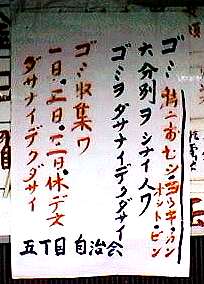 ゴミ 特ニおむシ・ヨウキ・カン
ポント・ビン
大分別ヲ シナイ人ワ
ゴミヲ ダサナイデクダサイ
ゴミ収集ワ
一日・二日・三日・休デス
ダサナイデクダサイ
五丁目 自治会